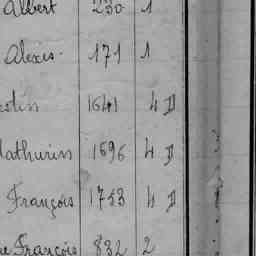 Albert 230 1
Alexis 171 1
colin 1641 4 D
Mathurin 1696 4 D
François 1753 4 D
François 832 2